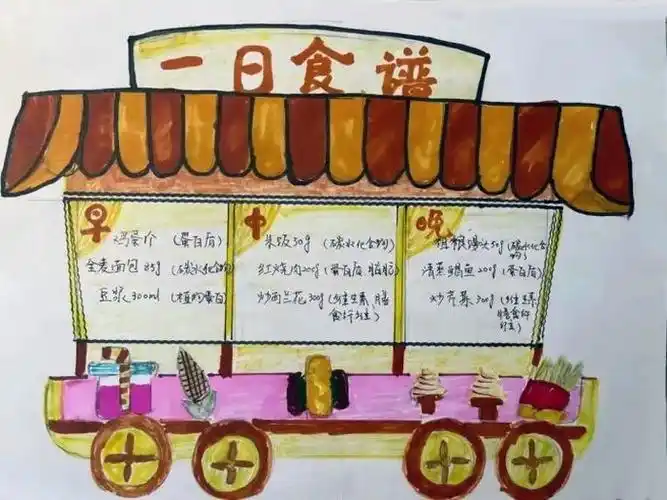 一日食谱
早
鸡蛋1个 (蛋白质)
全麦面包85g (碳水化合物)
豆浆300ml (植物蛋白)
中
米饭50g (碳水化合物)
红烧肉205g (蛋白质 脂肪)
炒西兰花300g (维生素 膳
食纤维)
晚
粗粮馒头50g (碳水化合
物)
清蒸鲳鱼200g (蛋白质)
炒芹菜300g (维生素
膳食纤
维)